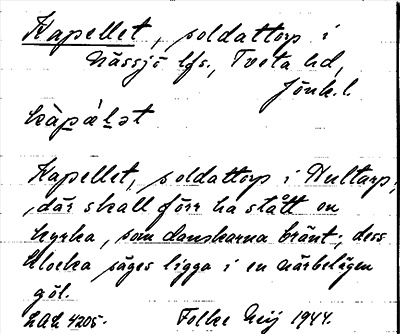 Kapellet, soldattorp i
Nässjö lfs., Tveta hd,
Jönk. l.
kàpälət
Kapellet, soldattorp i Hultarp,
där skall förr ha stått en
kyrka, som danskarna bränt; dess
klocka säges ligga i en närbelägen
göl.
Folke Heij 1944.